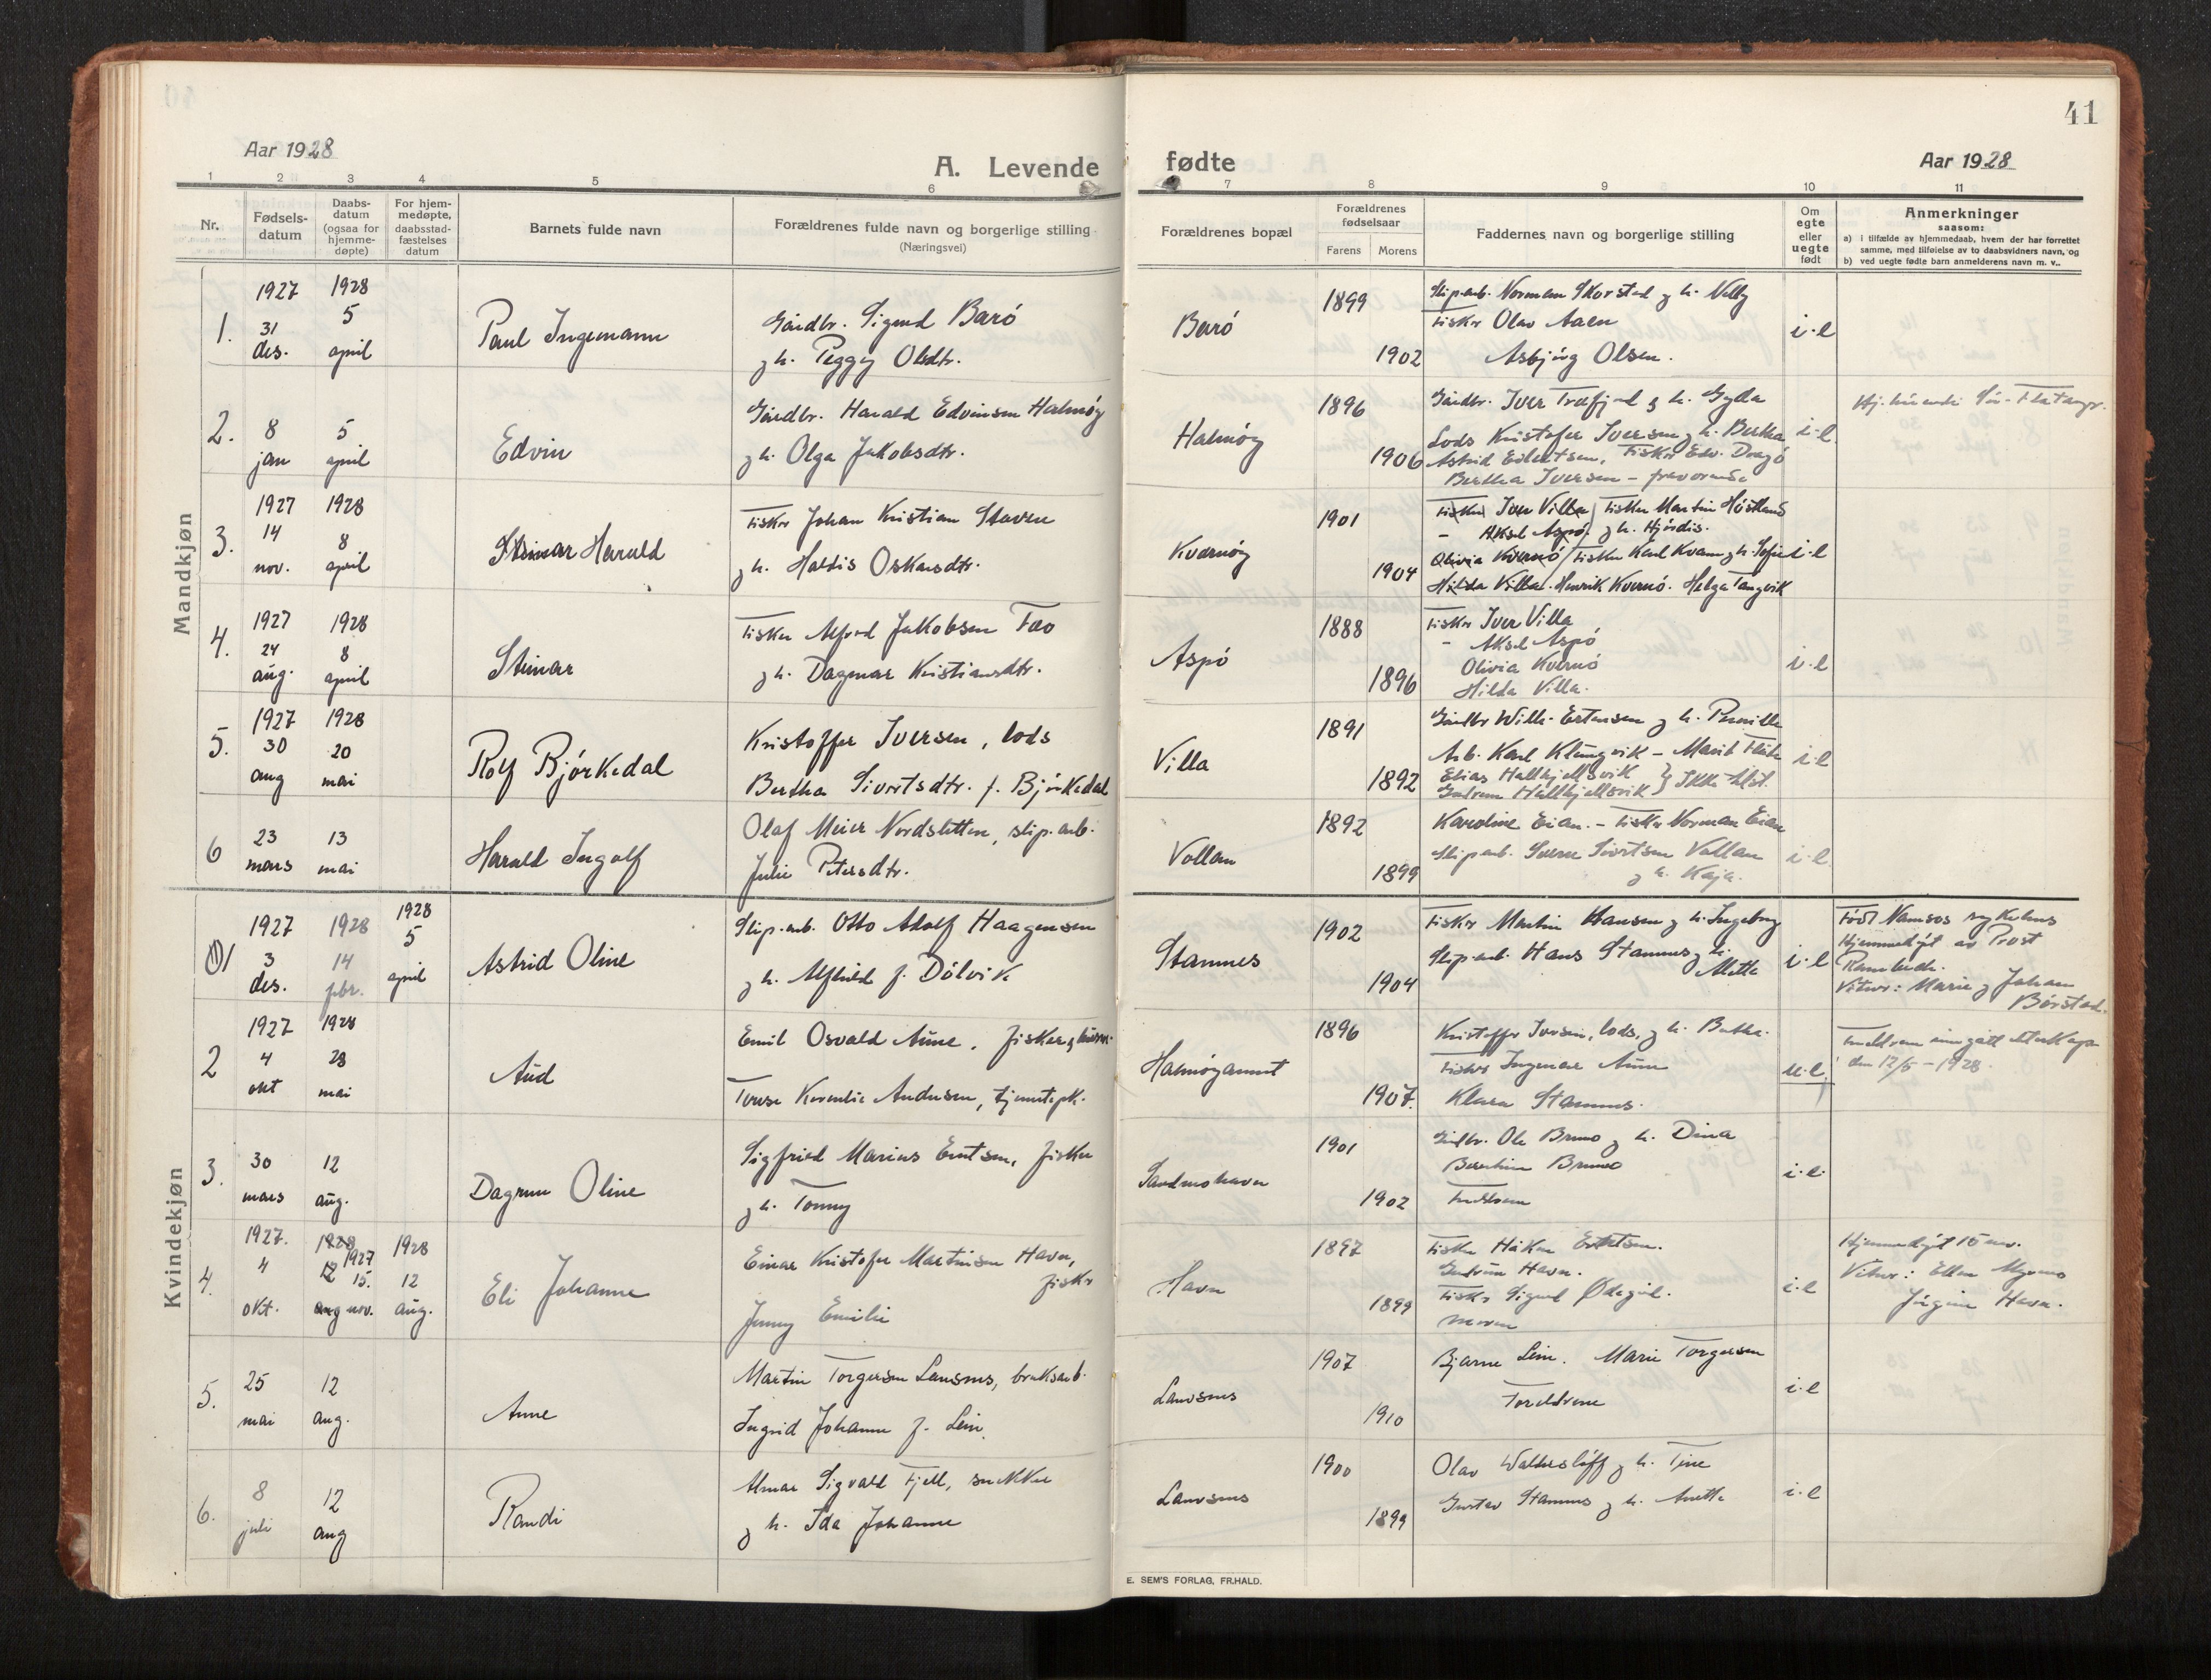 41
Aar 1928
A. Levende
fødte
Aar 1928
1 2 3 4 5 6 7 8 9 10 11
Nr.
Fødsels-
datum
Daabs-
datum
(ogsaa for
hjemme-
døpte)
For hjem-
medøpte,
daabsstad-
fæstelses
datum
Barnets fulde navn
Forældrenes fulde navn og borgerlige stilling
(Næringsvei)
Forældrenes bopæl
Forældrenes
fødselsaar
Farens Morens
Faddernes navn og borgerlige stilling
Om
egte
eller
uegte
født
Anmerkninger
saasom:
a) i tilfælde av hjemmedaab, hvem der har forrettet
samme, med tilføielse av to daabsvidners navn, og
b) ved uegte fødte barn anmelderens navn m. v..
Mandkjøn
1.
1927
31
des.
1928
5
april
Paul Ingemann
Gårdbr. Sigurd Barö
g h. Peggy Olsdtr.
Barö
1899
1902
Slip.arb. Norman Skorstad g h. Nelly
Fisker Olav Aaen
Asbjörg Olsen.
i.e
2.
8
jan
5
april
Edvin
Gårdbr. Harald Edvinsen Halmöy
g h. Olga Jakobsdtr.
Halmöy
1896
1906
Gårdbr. Iver Træfjord g h. Gyda
Lods Kristofer Iversen g h. Bertha
Astrid Edvertsen, Fisker Edv. Dragö
Bertha Iversen - fraværende
i.e
3.
1927
14
nov.
1928
8
april
Steinar Harald
Fisker Johan Kristian Staven
g h. Haldis Oskarsdtr.
Kvernöy
1901
1904
Fisker Iver Villa / Fisker Martin Höstland
- Aksel Aspö. g h. Hjördis.
Olivia Kvernö / Fisker Karl Kvam g h. Sofie
Hilda Villa. Henrik Kvernö. Helga Tangvik
i.e
4.
1927
24
aug.
1928
8
april
Steinar
Fisker Alfred Jakobsen Fao
g h. Dagmar Kristiansdtr.
Aspö
1888
1896
Fisker Iver Villa
- Aksel Aspö
Olivia Kvernö
Hilda Villa.
i.e
5.
1927
30
aug
1928
20
mai
Rolf Björkedal
Kristoffer Iversen, lods
Bertha Sivertsdtr. f. Björkedal
Villa
1891
1892
Gårdbr Wilh. Ertensen g h. Pernille
Arb. Karl Klungvik - Marit
Elias Hallkjellsvik } Ikke tilst.
Gudrun Hallkjellsvik
i.e
6
23
mars
13
mai
Harald Ingolf
Olaf Meier Nordsletten, slip.arb.
Julie Petersdtr.
Vollan
1892
1899
Karoline Eian. - Fisker Norman Eian
Slip.arb. Sverre Sivertsen Vollan
g h. Kaja.
i.e
Kvindekjøn
1
1927
3
des.
1928
14
febr.
1928
5
april
Astrid Oline
Slip.arb. Otto Adolf Haagensen
g h. Alfhild f. Dölvik
Stamnes
1902
1904
Fisker Martin Hansen g h. Ingeborg
Slip.arb. Hans Stamnes g h.
Mette
i.e
Född Namsos sykehus
Hjemmedöpt av Prost
Vitner: Marie g Johan
Börstad.
2
1927
4
okt
1928
28
mai
Aud
Emil Osvald Aune, fisker g
Andersen, tjenestepk.
Halmöyamnt
1896
1907.
Kristoffer Iversen, lods, g h. Bertha.
Fisker Ingemar Aune
Klara Stamnes.
u.e.
Foreldrene inngått ekteskap
den 12/5 - 1928.
3.
30
mars
12
aug.
Dagrun Oline
Sigfried Marius Erntsen, fisker
g h. Tonny
Sandmohavn
1901
1902
Gårdbr. Ole Bruno g h. Dina
Bruno
Foreldrene
i.e.
4.
1927.
4
okt.
1928
12
aug
1927
15.
nov.
1928
12
aug.
Eli Johanne
Einar Kristofer Martinsen Havn,
fisker
Jenny Emilie
Havn
1897
1899
Fisker Håken Ertetsen.
Gudrun Havn.
Fisker Sigurd Ödegård.
Moren
i.e
Hjemmedöpt 15 nov.
Vitner: Ellen Myrmo
Jörgine Havn.
5.
25
mai
12
aug.
Anne
Martin Torgersen Lausnes, bruksarb.
Ingrid Johanne f. Lein.
Lausnes
1907
1910
Bjarne Lein. Marie Torgersen
Foreldrene
i.e
6.
8
juli
12
aug
Randi
Almar Sigvald Fjell, snekker
g h. Ida Johanne
Lausnes
1900
1899
Olav Walhersløff g h. Tine
Gustav Stamnes g h. Anette
i.e
E. SEM'S FORLAG, FR.HALD.